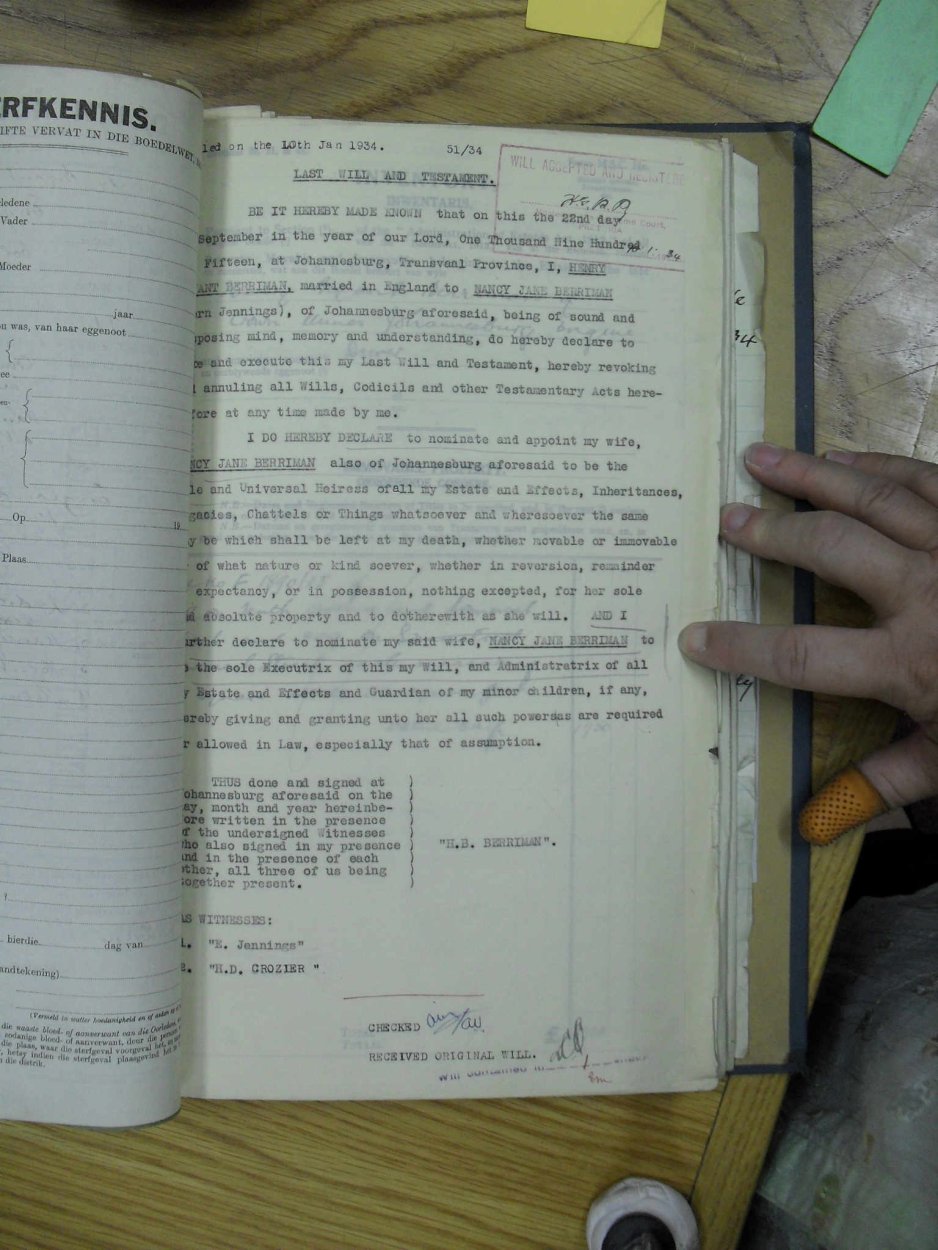 ERFKENNIS.
IFTE VERVAT IN DIE BOEDELWET,
ledene
Vader
Moeder
jaar
u was, van haar eggenoot
ee
en-
Op 19
Plaas
hierdie dag van
andtekening)
(Vermeld in watter hoedanigheid en of
die naaste bloed- of aanverwant van die Oorledene,
sodanige bloed- of aanverwant, deur die
die plaas, waar die sterfgeval voorgeval het,
, hetsy indien die sterfgeval plaasgevind het
die distrik.
led on the 10th Jan 1934. 51/34
WILL ACCEPTED AND REGISTERED
LAST WILL AND TESTAMENT.
BE IT HEREBY MADE KNOWN that on this the 22nd day
September in the year of our Lord, One Thousand Nine Hundred
Fifteen, at Johannesburg, Transvaal Province, I, HENRY
ANT BERRIMAN, married in England to NANCY JANE BERRIMAN
rn Jennings), of Johannesburg aforesaid, being of sound and
posing mind, memory and understanding, do hereby declare to
ke and execute this my Last Will and Testament, hereby revoking
d annuling all Wills, Codicils and other Testamentary Acts here-
fore at any time made by me.
I DO HEREBY DECLARE to nominate and appoint my wife,
NCY JANE BERRIMAN also of Johannesburg aforesaid to be the
le and Universal Heiress ofall my Estate and Effects, Inheritances,
gacies, Chattels or Things whatsoever and wheresoever the same
y be which shall be left at my death, whether movable or immovable
of what nature or kind soever, whether in reversion, remainder
expectancy, or in possession, nothing excepted, for her sole
d absolute property and to dotherewith as she will. AND I
rther declare to nominate my said wife, NANCY JANE BERRIMAN to
the sole Executrix of this my Will, and Administratrix of all
y Estate and Effects and Guardian of my minor children, if any,
ereby giving and granting unto her all such powersas are required
r allowed in Law, especially that of assumption.
THUS done and signed at )
ohannesburg aforesaid on the )
ay, month and year hereinbe- )
ore written in the presence )
f the undersigned Witnesses )
ho also signed in my presence ) "H.B. BERRIMAN".
nd in the presence of each )
other, all three of us being )
together present. )
AS WITNESSES:
1. "E. Jennings"
2. "H.D. CROZIER "
CHECKED
RECEIVED ORIGINAL WILL.